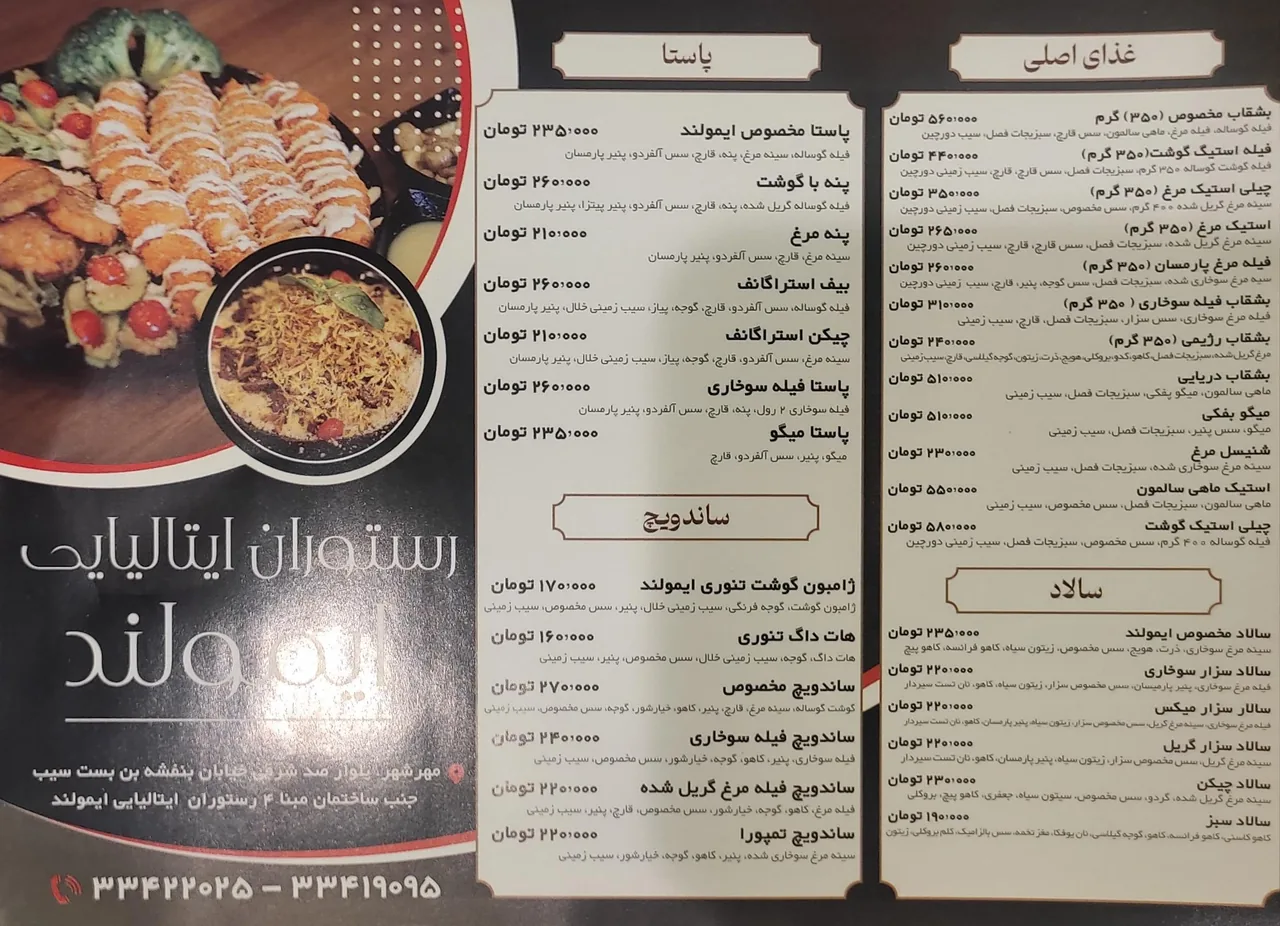 غذای اصلی
بشقاب مخصوص (۳۵۰) گرم ۵۶۰،۰۰۰ تومان
فیله گوساله، فیله مرغ، ماهی سالمون، سس قارچ، سبزیجات فصل، سیب دورچین
فیله استیگ گوشت(۳۵۰ گرم) ۴۴۰،۰۰۰ تومان
فیله گوشت گوساله ۳۵۰ گرم، سبزیجات فصل، سس قارچ، قارچ، سیب زمینی دورچین
چیلی استیک مرغ (۳۵۰ گرم) ۳۵۰،۰۰۰ تومان
سینه مرغ گریل شده ۴۰۰ گرم، سس مخصوص، سبزیجات فصل، سیب زمینی دورچین
استیک مرغ (۳۵۰ گرم) ۲۶۵،۰۰۰ تومان
سینه مرغ گریل شده، سبزیجات فصل، سس قارچ، قارچ، سیب زمینی دورچین
فیله مرغ پارمسان (۳۵۰ گرم) ۲۶۰،۰۰۰ تومان
سیه مرغ سوخاری شده، سبزیجات فصل، سس گوجه، پنیر، قارچ، سیب زمینی دورچین
بشقاب فیله سوخاری ( ۳۵۰ گرم) ۳۱۰،۰۰۰ تومان
فیله مرغ سوخاری، سس سزار، سبزیجات فصل، قارچ، سیب زمینی
بشقاب رژیمی (۳۵۰ گرم) ۲۴۰،۰۰۰ تومان
مرغ گریل شده، سبزیجات فصل، کاهو، کدو، بروکلی، هویج، ذرت، زیتون، گوجه گیلاسی، قارچ، سیب زمینی
بشقاب دریایی ۵۱۰،۰۰۰ تومان
ماهی سالمون، میگو پفکی، سبزیجات فصل، سیب زمینی
میگو بفکی ۵۱۰،۰۰۰ تومان
میگو، سس پنیر، سبزیجات فصل، سیب زمینی
شنیسل مرغ ۲۳۰،۰۰۰ تومان
سینه مرغ سوخاری شده، سبزیجات فصل، سیب زمینی
استیک ماهی سالمون ۵۵۰،۰۰۰ تومان
ماهی سالمون، سبزیجات فصل، سس مخصوص، سیب زمینی
چیلی استیک گوشت ۵۸۰،۰۰۰ تومان
فیله گوساله ۴۰۰ گرم، سس مخصوص، سبزیجات فصل، سیب زمینی دورچین
سالاد
سالاد مخصوص ایمولند ۲۳۵،۰۰۰ تومان
سینه مرغ سوخاری، ذرت، هویج، سس مخصوص، زیتون سیاه، کاهو فرانسه، کاهو پیچ
سالاد سزار سوخاری ۲۲۰،۰۰۰ تومان
فیله مرغ سوخاری، پنیر پارمیسان، سس مخصوص سزار، زیتون سیاه، کاهو، نان تست سیردار
سالار سزار میکس ۲۲۰،۰۰۰ تومان
فیله مرغ سوخاری، سینه مرغ گریل، سس مخصوص سزار، زیتون سیاه، پنیر پارمسان، کاهو، نان تست سیردار
سالاد سزار گریل ۲۲۰،۰۰۰ تومان
سینه مرغ گریل، سس مخصوص سزار، زیتون سیاه، پنیر پارمسان، کاهو، نان تست سیردار
سالاد چیکن ۲۳۰،۰۰۰ تومان
سینه مرغ گریل شده، گردو، سس مخصوص، سیتون سیاه، جعفری، کاهو پیچ، بروکلی
سالاد سبز ۱۹۰،۰۰۰ تومان
کاهو کاسنی، کاهو فرانسه، کاهو، گوجه گیلاسی، نان یوفکا، مغز تخمه، سس بالزامیک، کلم بروکلی، زیتون
پاستا
پاستا مخصوص ایمولند ۲۳۵،۰۰۰ تومان
فیله گوساله، سینه مرغ، پنه، قارچ، سس آلفردو، پنیر پارمسان
پنه با گوشت ۲۶۰،۰۰۰ تومان
فیله گوساله گریل شده، پنه، قارچ، سس آلفردو، پنیر پیتزا، پنیر پارمسان
پنه مرغ ۲۱۰،۰۰۰ تومان
سینه مرغ، قارچ، سس آلفردو، پنیر پارمسان
بیف استراگانف ۲۶۰،۰۰۰ تومان
فیله گوساله، سس آلفردو، قارچ، گوجه، پیاز، سیب زمینی خلال، پنیر پارمسان
چیکن استراگانف ۲۱۰،۰۰۰ تومان
سینه مرغ، سس آلفردو، قارچ، گوجه، پیاز، سیب زمینی خلال، پنیر پارمسان
پاستا فیله سوخاری ۲۶۰،۰۰۰ تومان
فیله سوخاری ۲ رول، پنه، قارچ، سس آلفردو، پنیر پارمسان
پاستا میگو ۲۳۵،۰۰۰ تومان
میگو، پنیر، سس آلفردو، قارچ
ساندویچ
ژامبون گوشت تنوری ایمولند ۱۷۰،۰۰۰ تومان
ژامبون گوشت، گوجه فرنگی، سیب زمینی خلال، پنیر، سس مخصوص، سیب زمینی
هات داگ تنوری ۱۶۰،۰۰۰ تومان
هات داگ، گوجه، سیب زمینی خلال، سس مخصوص، پنیر، سیب زمینی
ساندویچ مخصوص ۲۷۰،۰۰۰ تومان
گوشت گوساله، سینه مرغ، قارچ، پنیر، کاهو، خیارشور، گوجه، سس مخصوص، سیب زمینی
ساندویچ فیله سوخاری ۲۴۰،۰۰۰ تومان
فیله سوخاری، پنیر، کاهو، گوجه، خیارشور، سس مخصوص، سیب زمینی
ساندویچ فیله مرغ گریل شده ۲۲۰،۰۰۰ تومان
فیله مرغ، کاهو، گوجه، خیارشور، سس مخصوص، قارچ، پنیر، سیب زمینی
ساندویچ تمپورا ۲۲۰،۰۰۰ تومان
سینه مرغ سوخاری شده، پنیر، کاهو، گوجه، خیارشور، سیب زمینی
رستوران ایتالیایی
ایمولند
مهرشهر، بلوار صد شرقی خیابان بنفشه بن بست سیب
جنب ساختمان مبنا ۴ رستوران ایتالیایی ایمولند
۳۳۴۱۹۰۹۵ – ۳۳۴۲۲۰۲۵